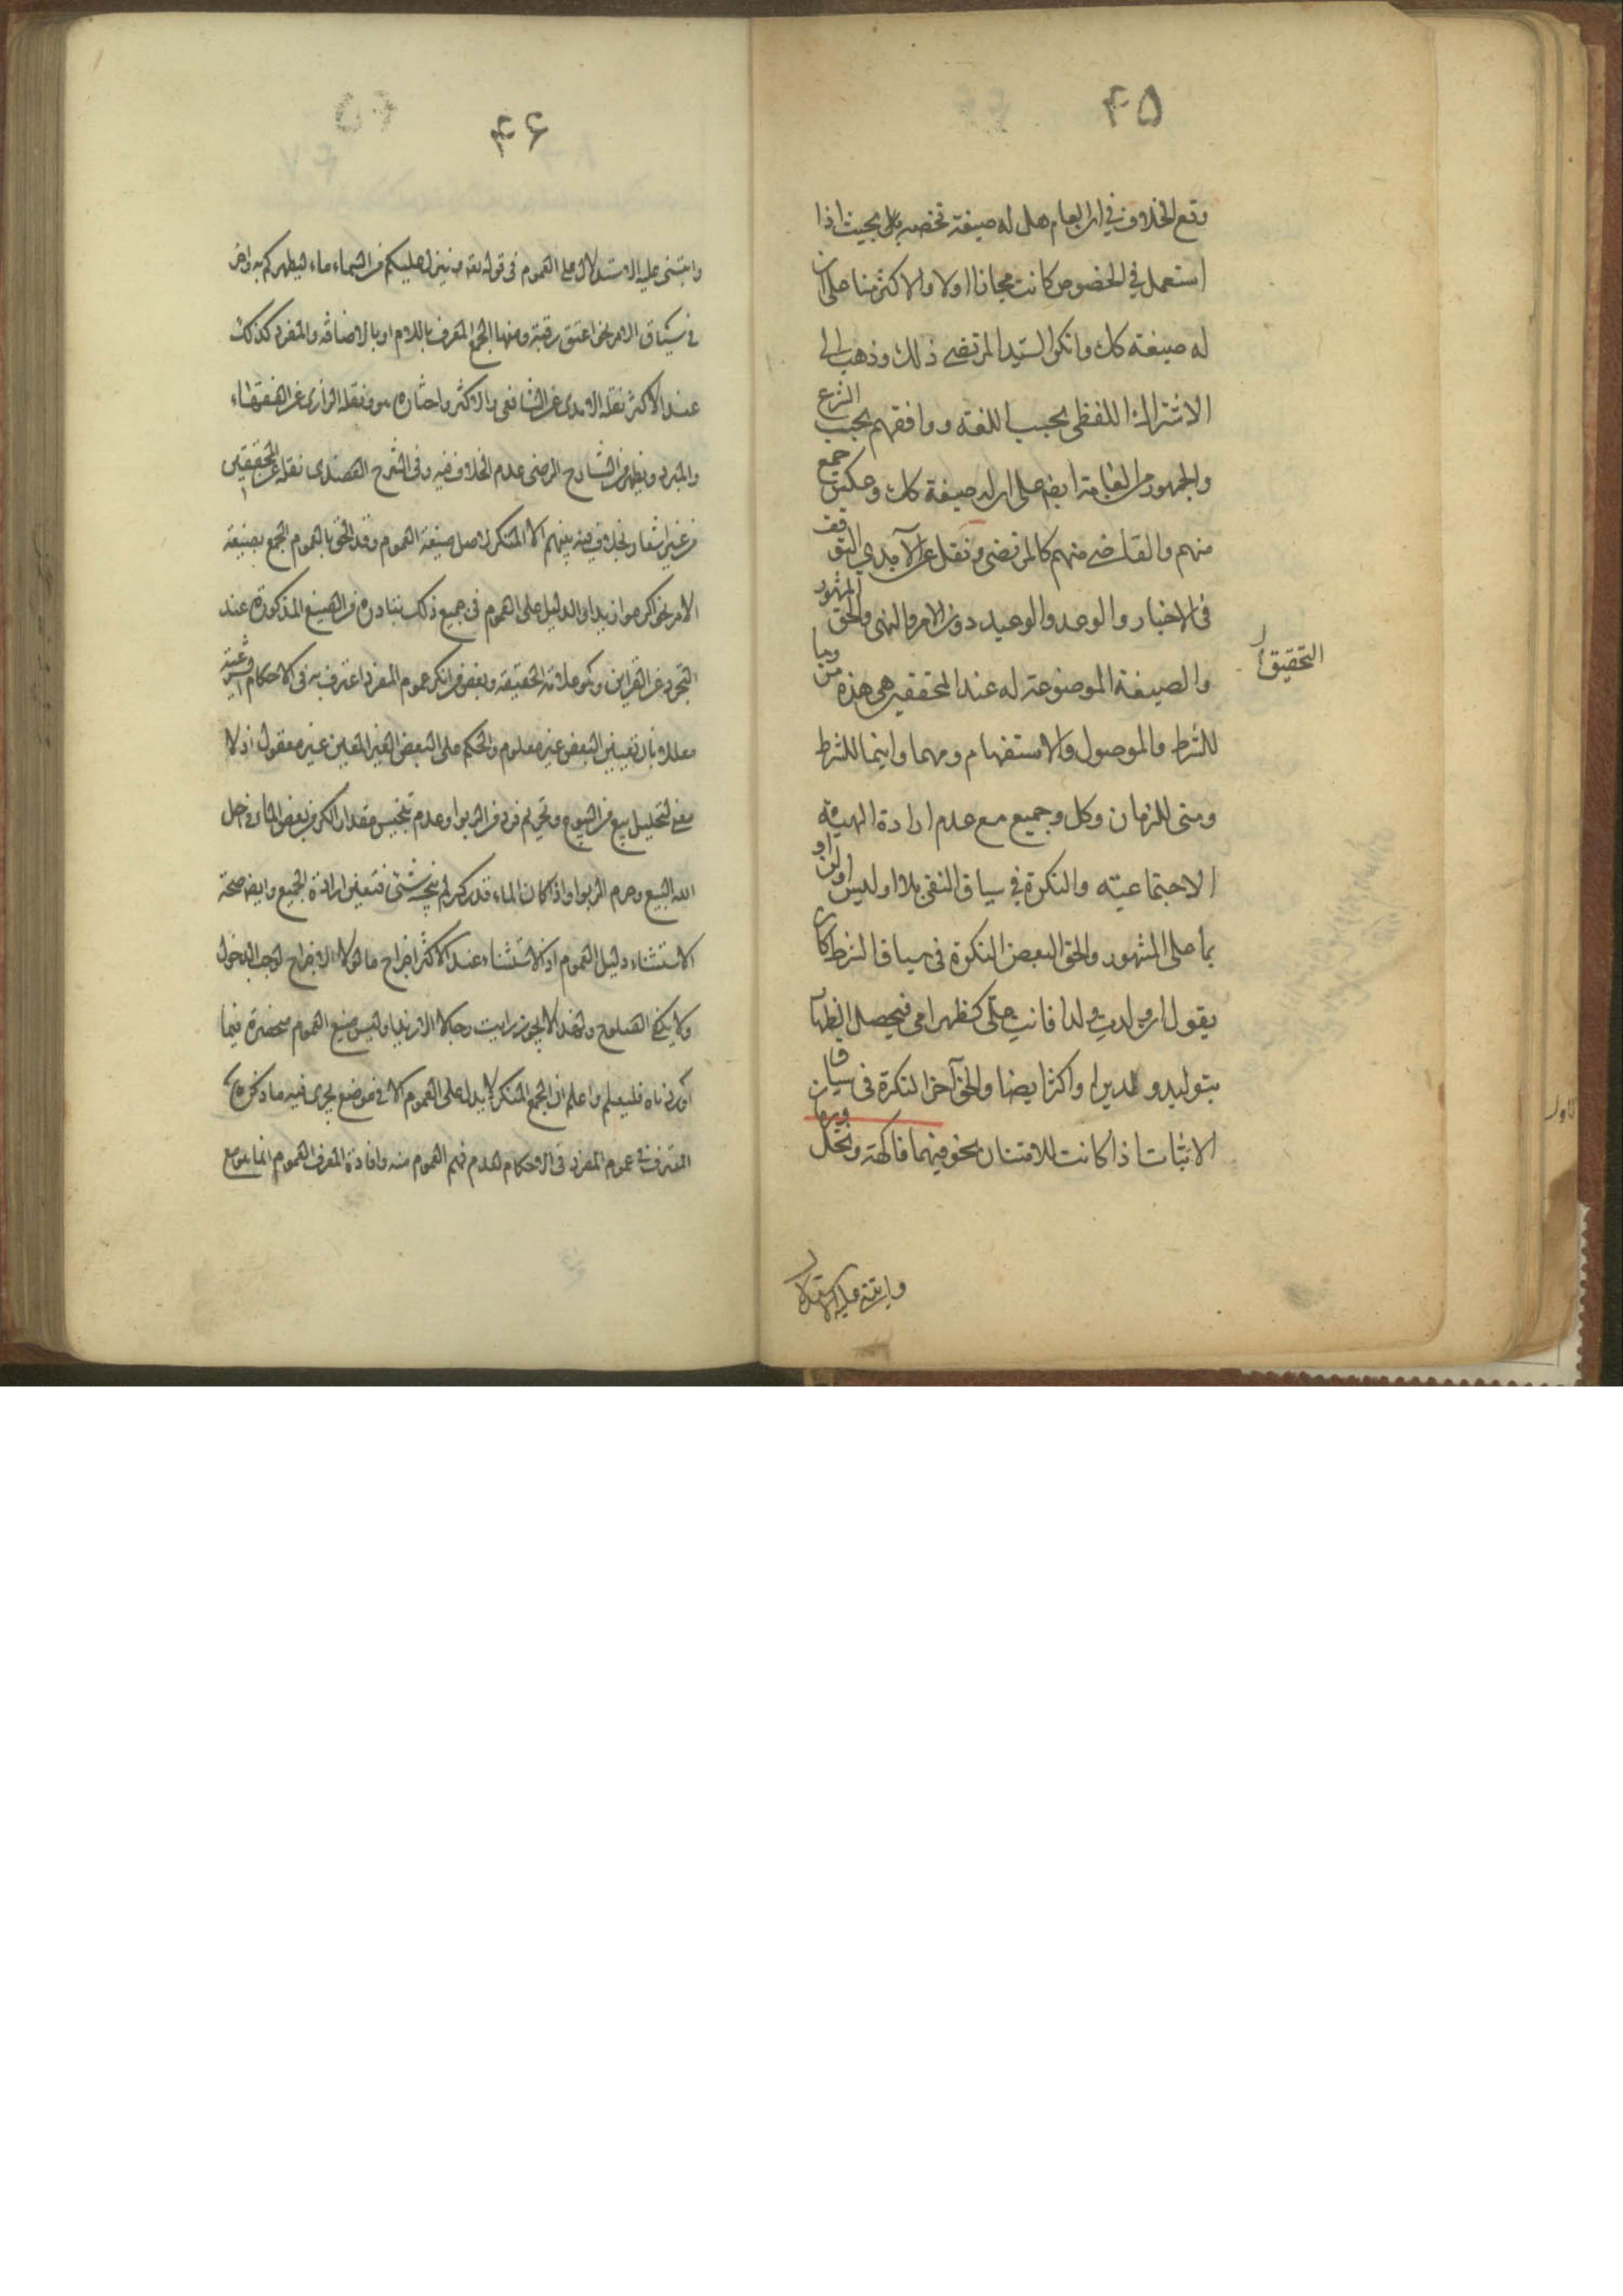 ۴۵
وقع الخلاف في ان العام هل له صيغة تخصه بل بحيث اذا
استعمل في الخصوص كانت مجازا اولا والاكثر منا على ان
له صيغة كك وانكر السيد المرتضى ذلك وذهب الى
الاشتراك اللفظى بحسب اللغة ووافقهم بحسب الشرع
والجمهور من العامة ايض على ان له صيغة كك وعكس جمع
منهم والقاضى منهم كالمرتضى ونقل عن الآمدي التوقف
فى الاخبار والوعد والوعيد دون الامر والنهى والحق المشهور
التحقيق
والصيغة الموضوعة له عند المحققين هى هذه من وما
للشرط والموصول والاستفهام ومهما واينما للشرط
ومتى للزمان وكل وجميع مع عدم ارادة الهيئة
الاجتماعية والنكرة في سياق النفى بلا او ليس او لن او
بما على المشهور والحق البعض النكرة في سياق الشرط كان
يقول ان ولدت ولدا فانت على كظهر امى فيحصل الظهار
بتوليد ولدين او اكثر ايضا والحق آخر النكرة فى سياق
الاثبات اذا كانت للامتنان نحو فيهما فاكهة ونخل ورمان
وابتنى عليه الاستدلال
۴۶
وابتنى عليه الاستدلال على العموم فى قوله تعه وينزل عليكم من السماء ماء ليطهركم به
في سياق الامر نحو اعتق رقبة ومنها الجمع المعرف باللام او بالاضافة والمفرد كذلك
عند الاكثر نقله الامدى عن الشافعى والاكثر واختاره هو ونقله الرازى عن الفقهاء
والمبرد ويظهر من الشارح الرضى عدم الخلاف فيه وفى الشرح العضدى نقله عن المحققين
من غير اشعار بخلاف فيه بينهم الا المنكر لاصل صيغة العموم وقد الحق بالعموم الجمع بصيغة
الامر نحو اكرموا زيدا والدليل على العموم فى جميع ذلك تبادره من الصيغ المذكورة عند
التجرد عن القراين وهو علامة الحقيقة وبعض من انكر عموم المفرد اعترف به فى الاحكام الشرعية
معللا بان تعيين البعض غير معلوم والحكم على البعض الغير المعين غير معقول اذ لا
معنى لتحليل بيع من البيوع وتحريم فرد من الربوا وعدم تنجيس مقدار الكر من بعض الماء فى احل
الله البيع وحرم الربوا واذا كان الماء قدر كر لم ينجسه شئ فتعين ارادة الجميع وايض صحة
الاستثناء دليل العموم اذ الاستثناء عند الاكثر اخراج ما لولا الاخراج لوجب الدخول
ولا يكفى الصلوح ولهذا لا يجوز رايت رجالا الا زيدا وليس صيغ العموم منحصرة فيما
اوردناه فليعلم واعلم ان الجمع المنكر لا يدل على العموم الا فى موضع يجرى فيه ما ذكره
المعترف فى عموم المفرد فى الاحكام لعدم فهم العموم منه وافادة المعرف العموم انما هو مع